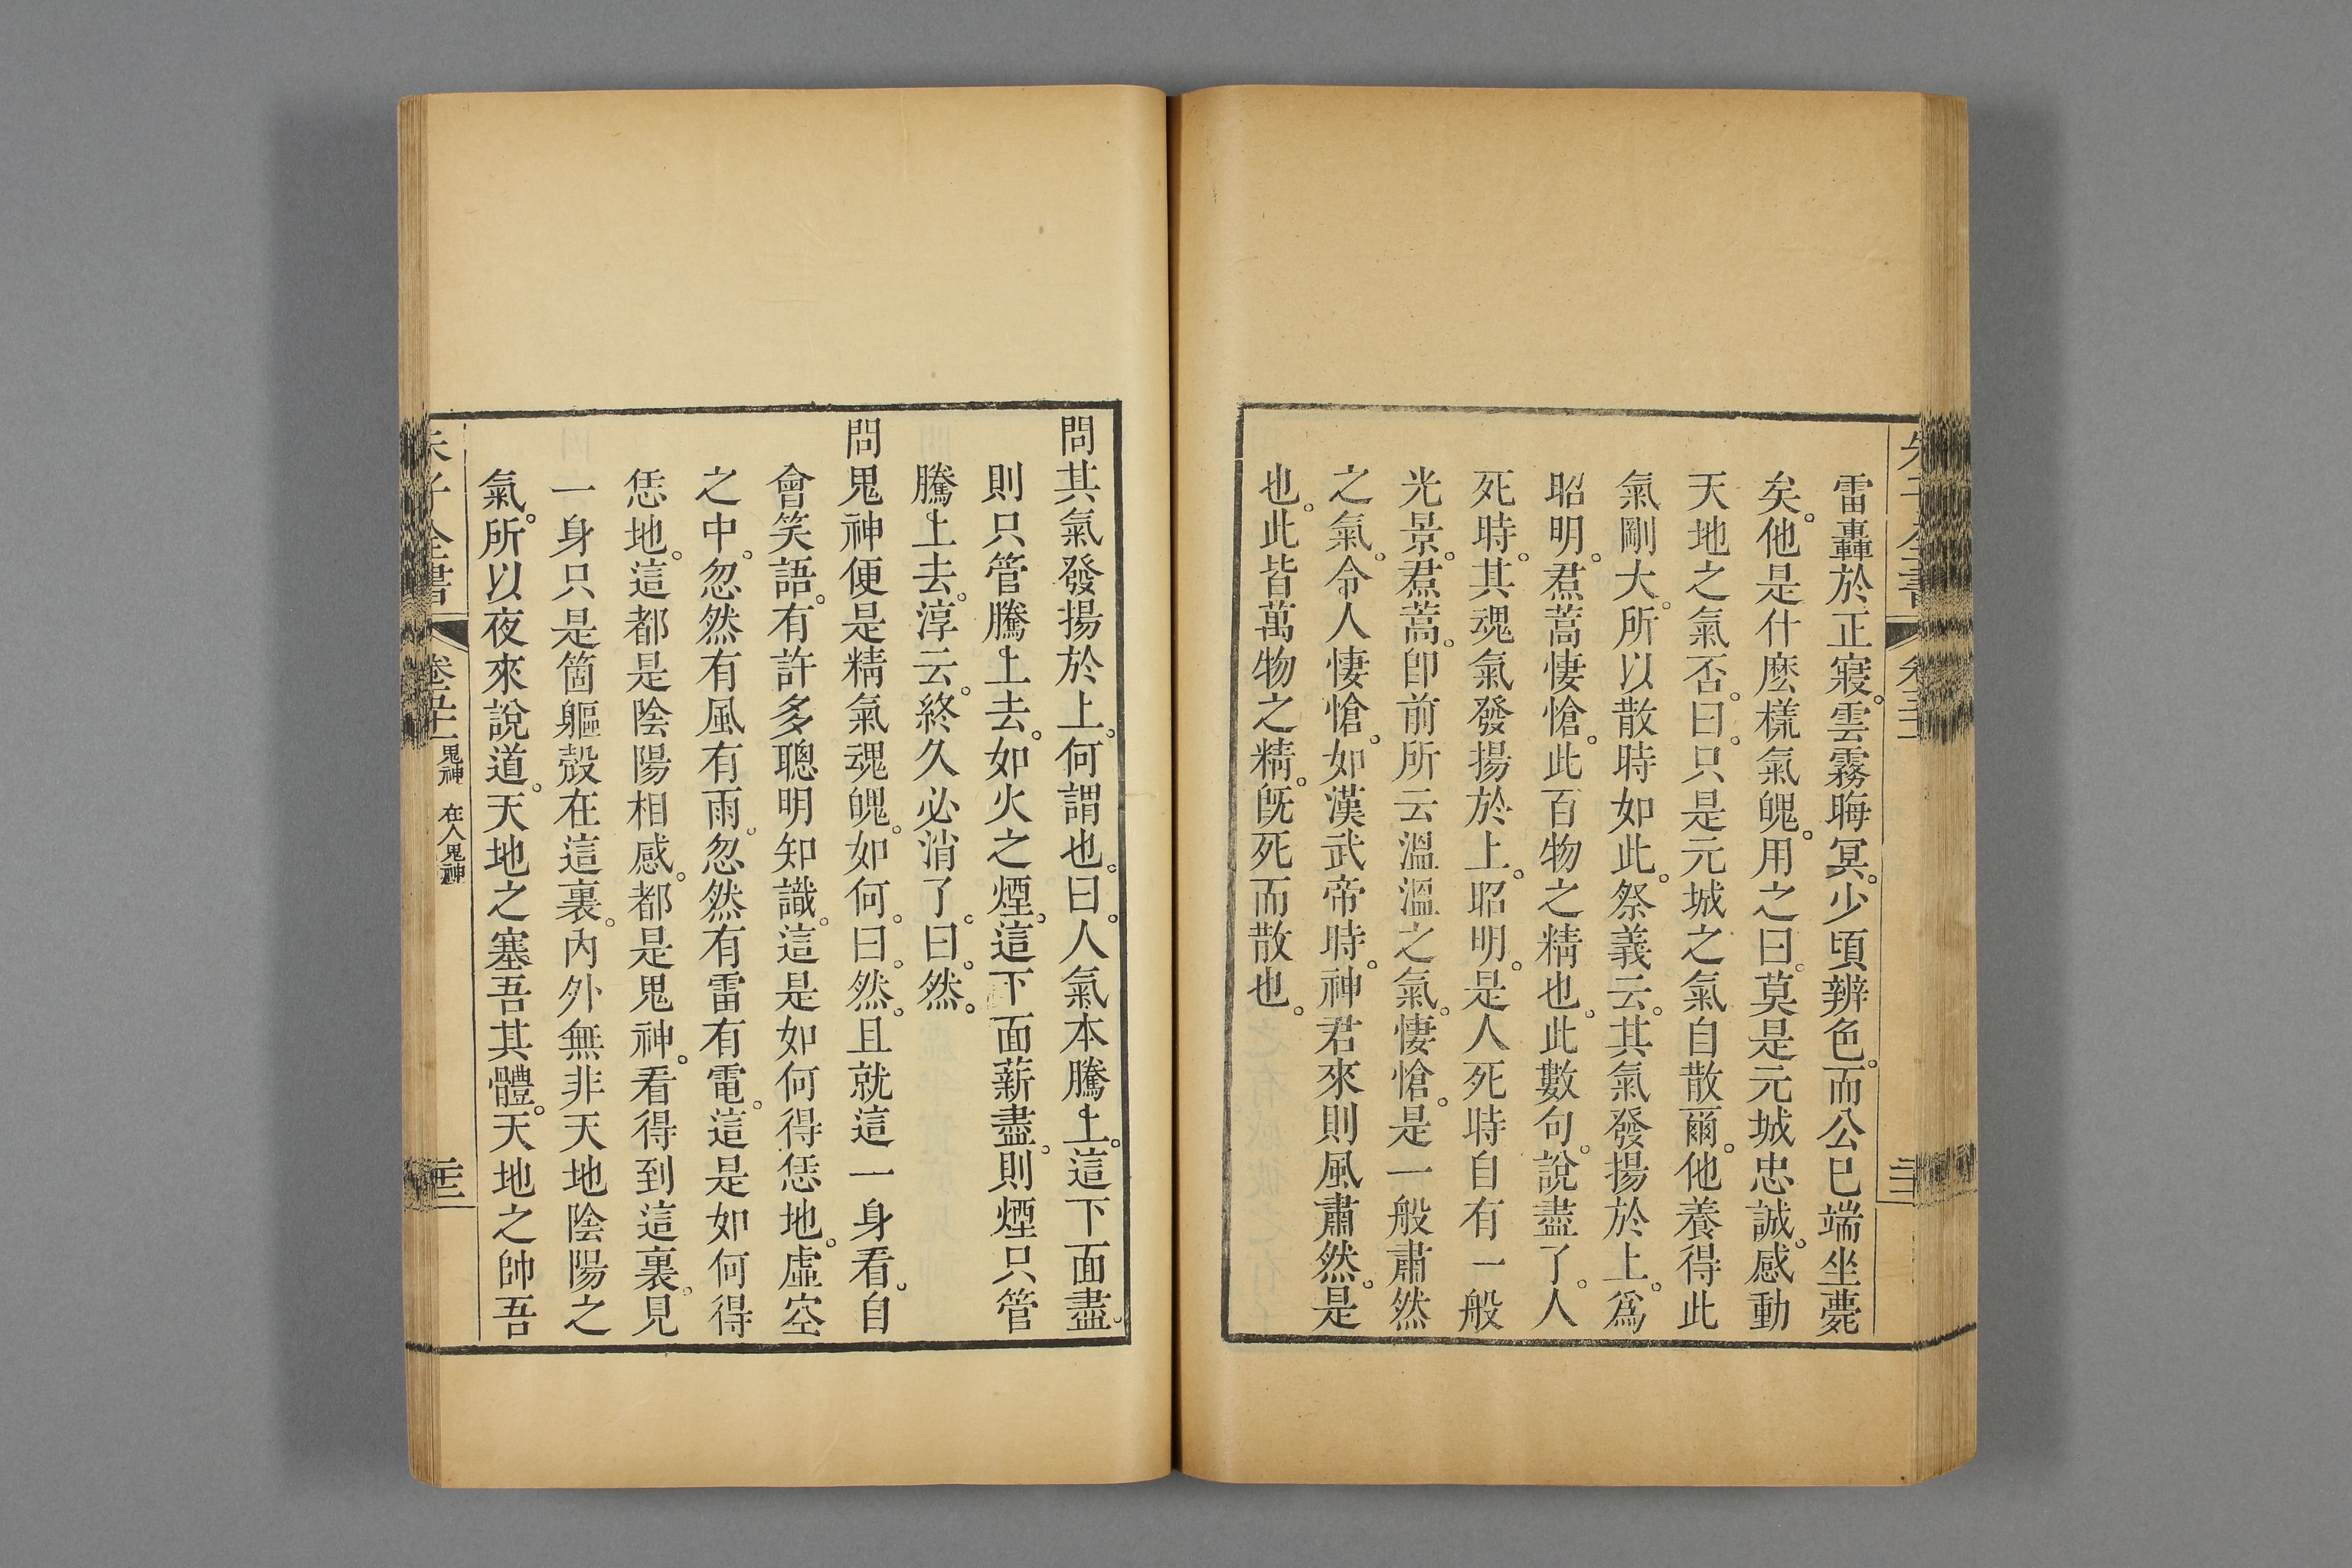 雷轟於正寢。雲霧晦冥。少頃辨色。而公已端坐薨
矣。他是什麽樣氣魄。用之曰。莫是元城忠誠。感動
天地之氣否。曰。只是元城之氣自散爾。他養得此
氣剛大。所以散時如此。祭義云。其氣發揚於上。爲
昭明。焄蒿悽愴。此百物之精也。此數句。說盡了。人
死時。其魂氣發揚於上。昭明。是人死時自有一般
光景。焄蒿。卽前所云溫溫之氣。悽愴。是一般肅然
之氣。令人悽愴。如漢武帝時。神君來則風肅然。是
也。此皆萬物之精。旣死而散也。
問其氣發揚於上。何謂也。曰。人氣本騰上。這下面盡。
則只管騰上去。如火之煙。這下面薪盡。則煙只管
騰上去。淳云。終久必消了。曰。然。
問鬼神便是精氣魂魄。如何。曰。然。且就這一身看。自
會笑語。有許多聰明知識。這是如何得恁地。虛空
之中。忽然有風有雨。忽然有雷有電。這是如何得
恁地。這都是陰陽相感。都是鬼神。看得到這裏。見
一身只是箇軀殼在這裏。內外無非天地陰陽之
氣。所以夜來說道。天地之塞吾其體。天地之帥吾
朱子全書
卷五十一
鬼神 在人鬼神